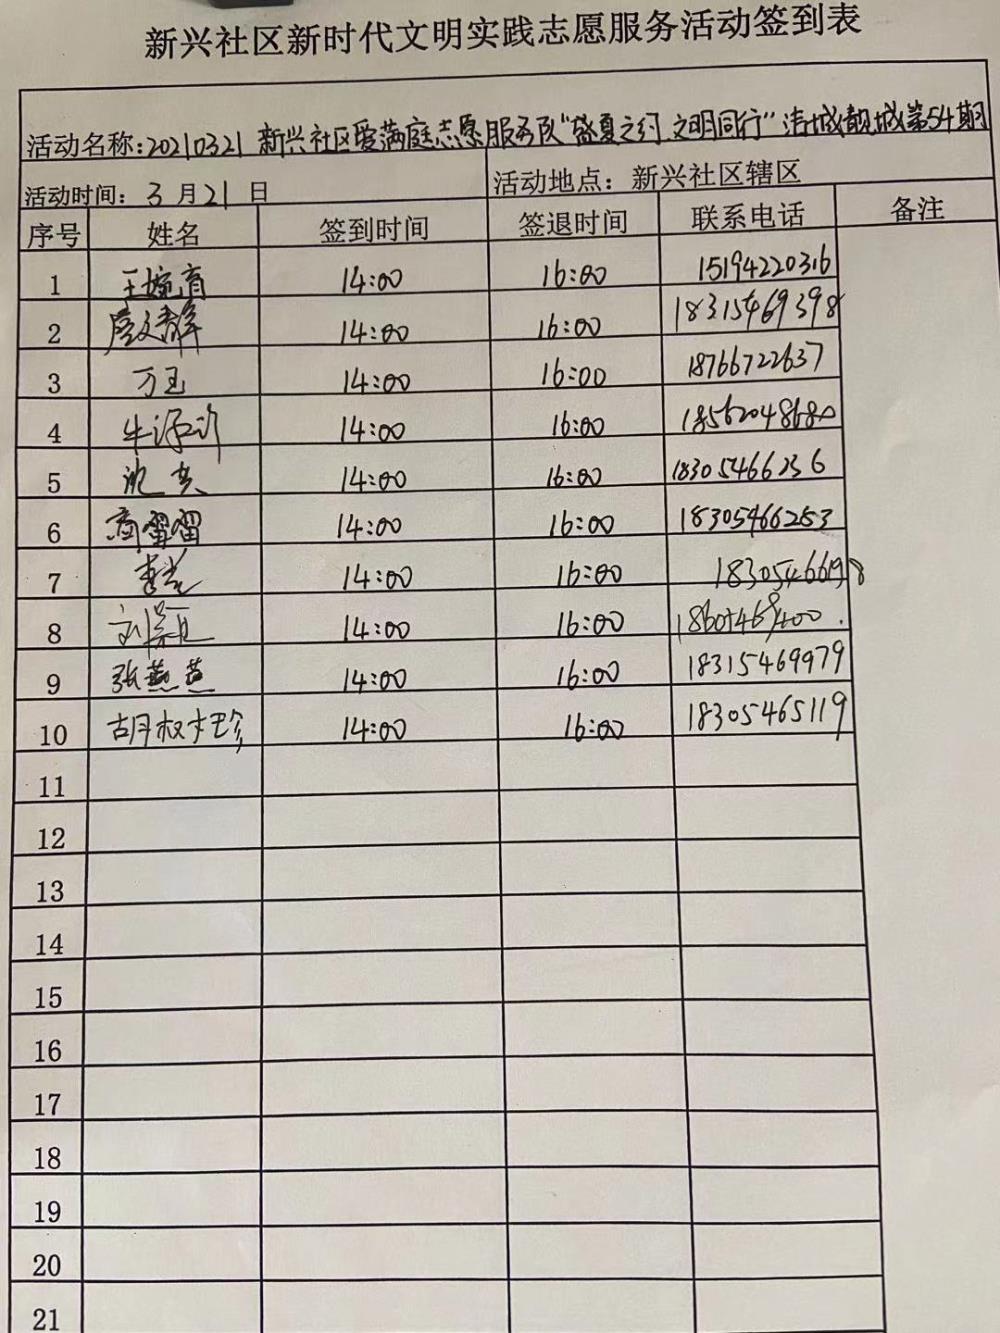 新兴社区新时代文明实践志愿服务活动签到表
活动名称:20210321 新兴社区爱满庭志愿服务队“盛夏之约 文明同行”清城靓城第54期
活动时间: 3 月 21 日 活动地点: 新兴社区辖区
序号 姓名 签到时间 签退时间 联系电话 备注
1 14:00 16:00 15194220316
2 14:00 16:00 18315469398
3 万玉 14:00 16:00 18766722637
4 14:00 16:00
5 14:00 16:00 18305466236
6 商留留 14:00 16:00 18305466253
7 14:00 16:00 18305466198
8 14:00 16:00
9 张燕燕 14:00 16:00 18315469979
10 14:00 16:00 18305465119
11
12
13
14
15
16
17
18
19
20
21